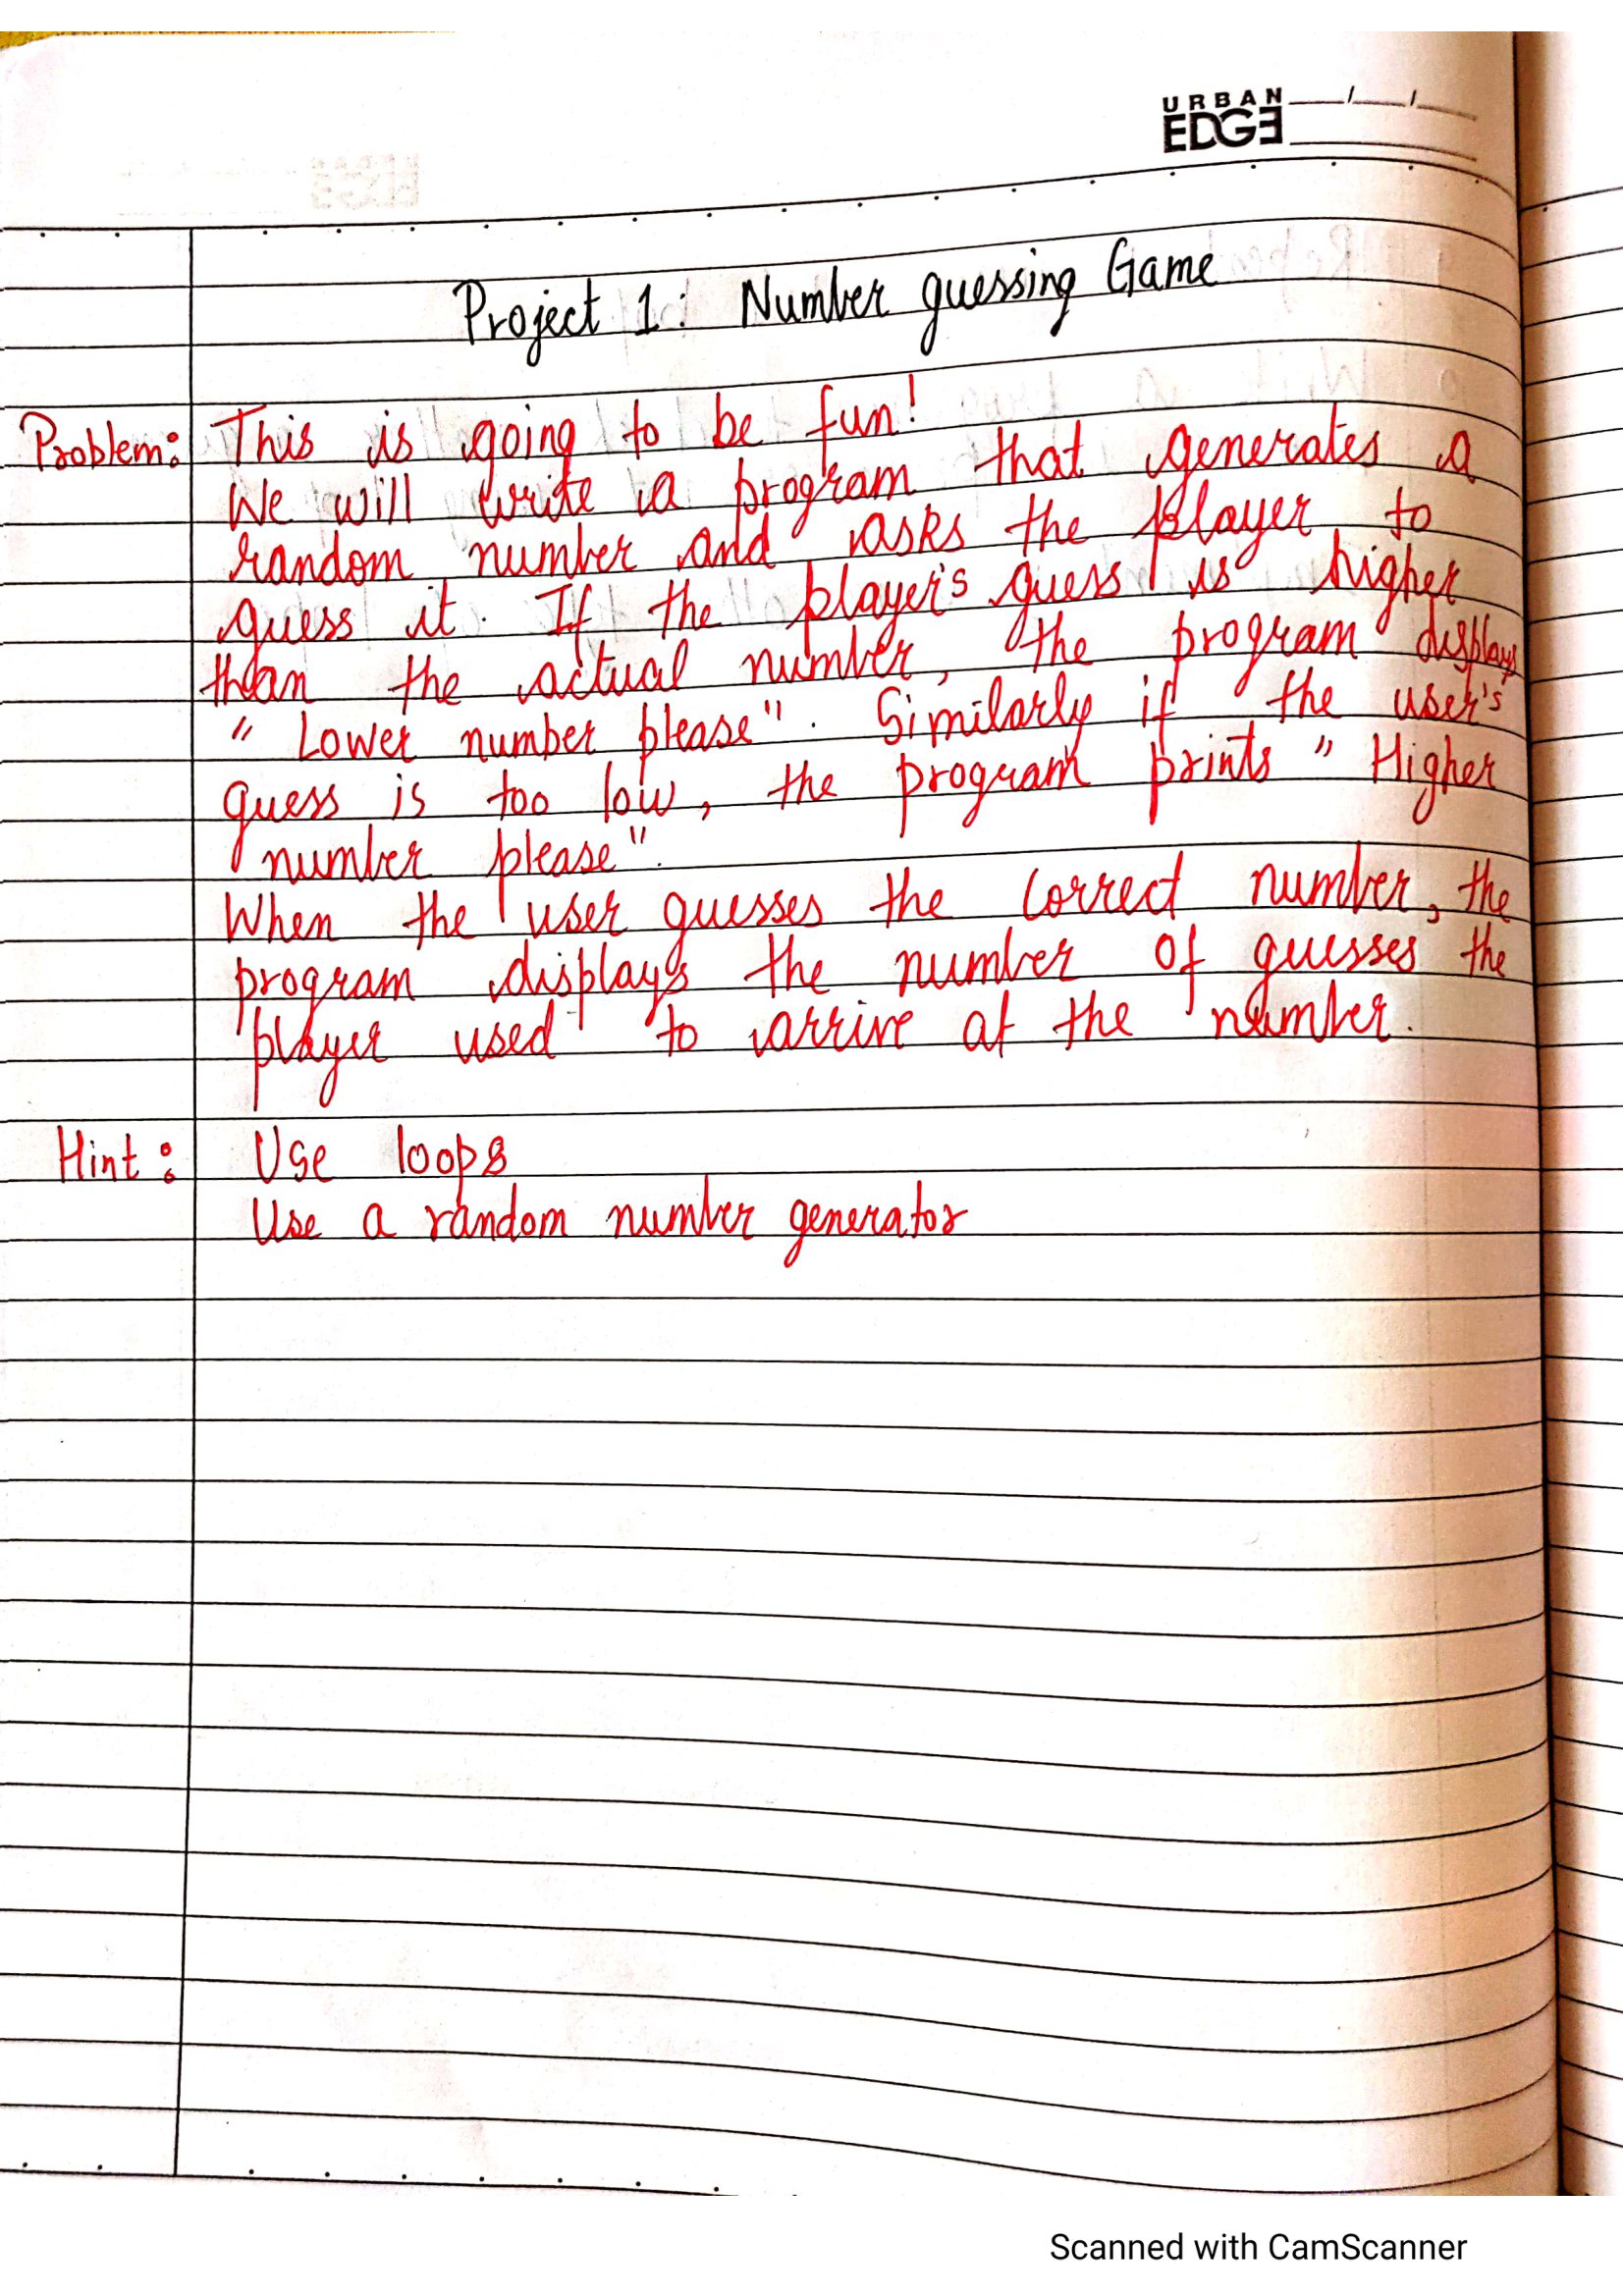 URBAN
EDGE
Project 1: Number guessing Game
Problem: This is going to be fun!
We will write a program that generates a
random number and asks the player to
guess it. If the player's guess is higher
than the actual number, the program displays
" Lower number please". Similarly if the user's
guess is too low, the program prints " Higher
number please".
When the user guesses the correct number, the
program displays the number of guesses the
player used to arrive at the number.
Hint: Use loops
Use a random number generator
Scanned with CamScanner